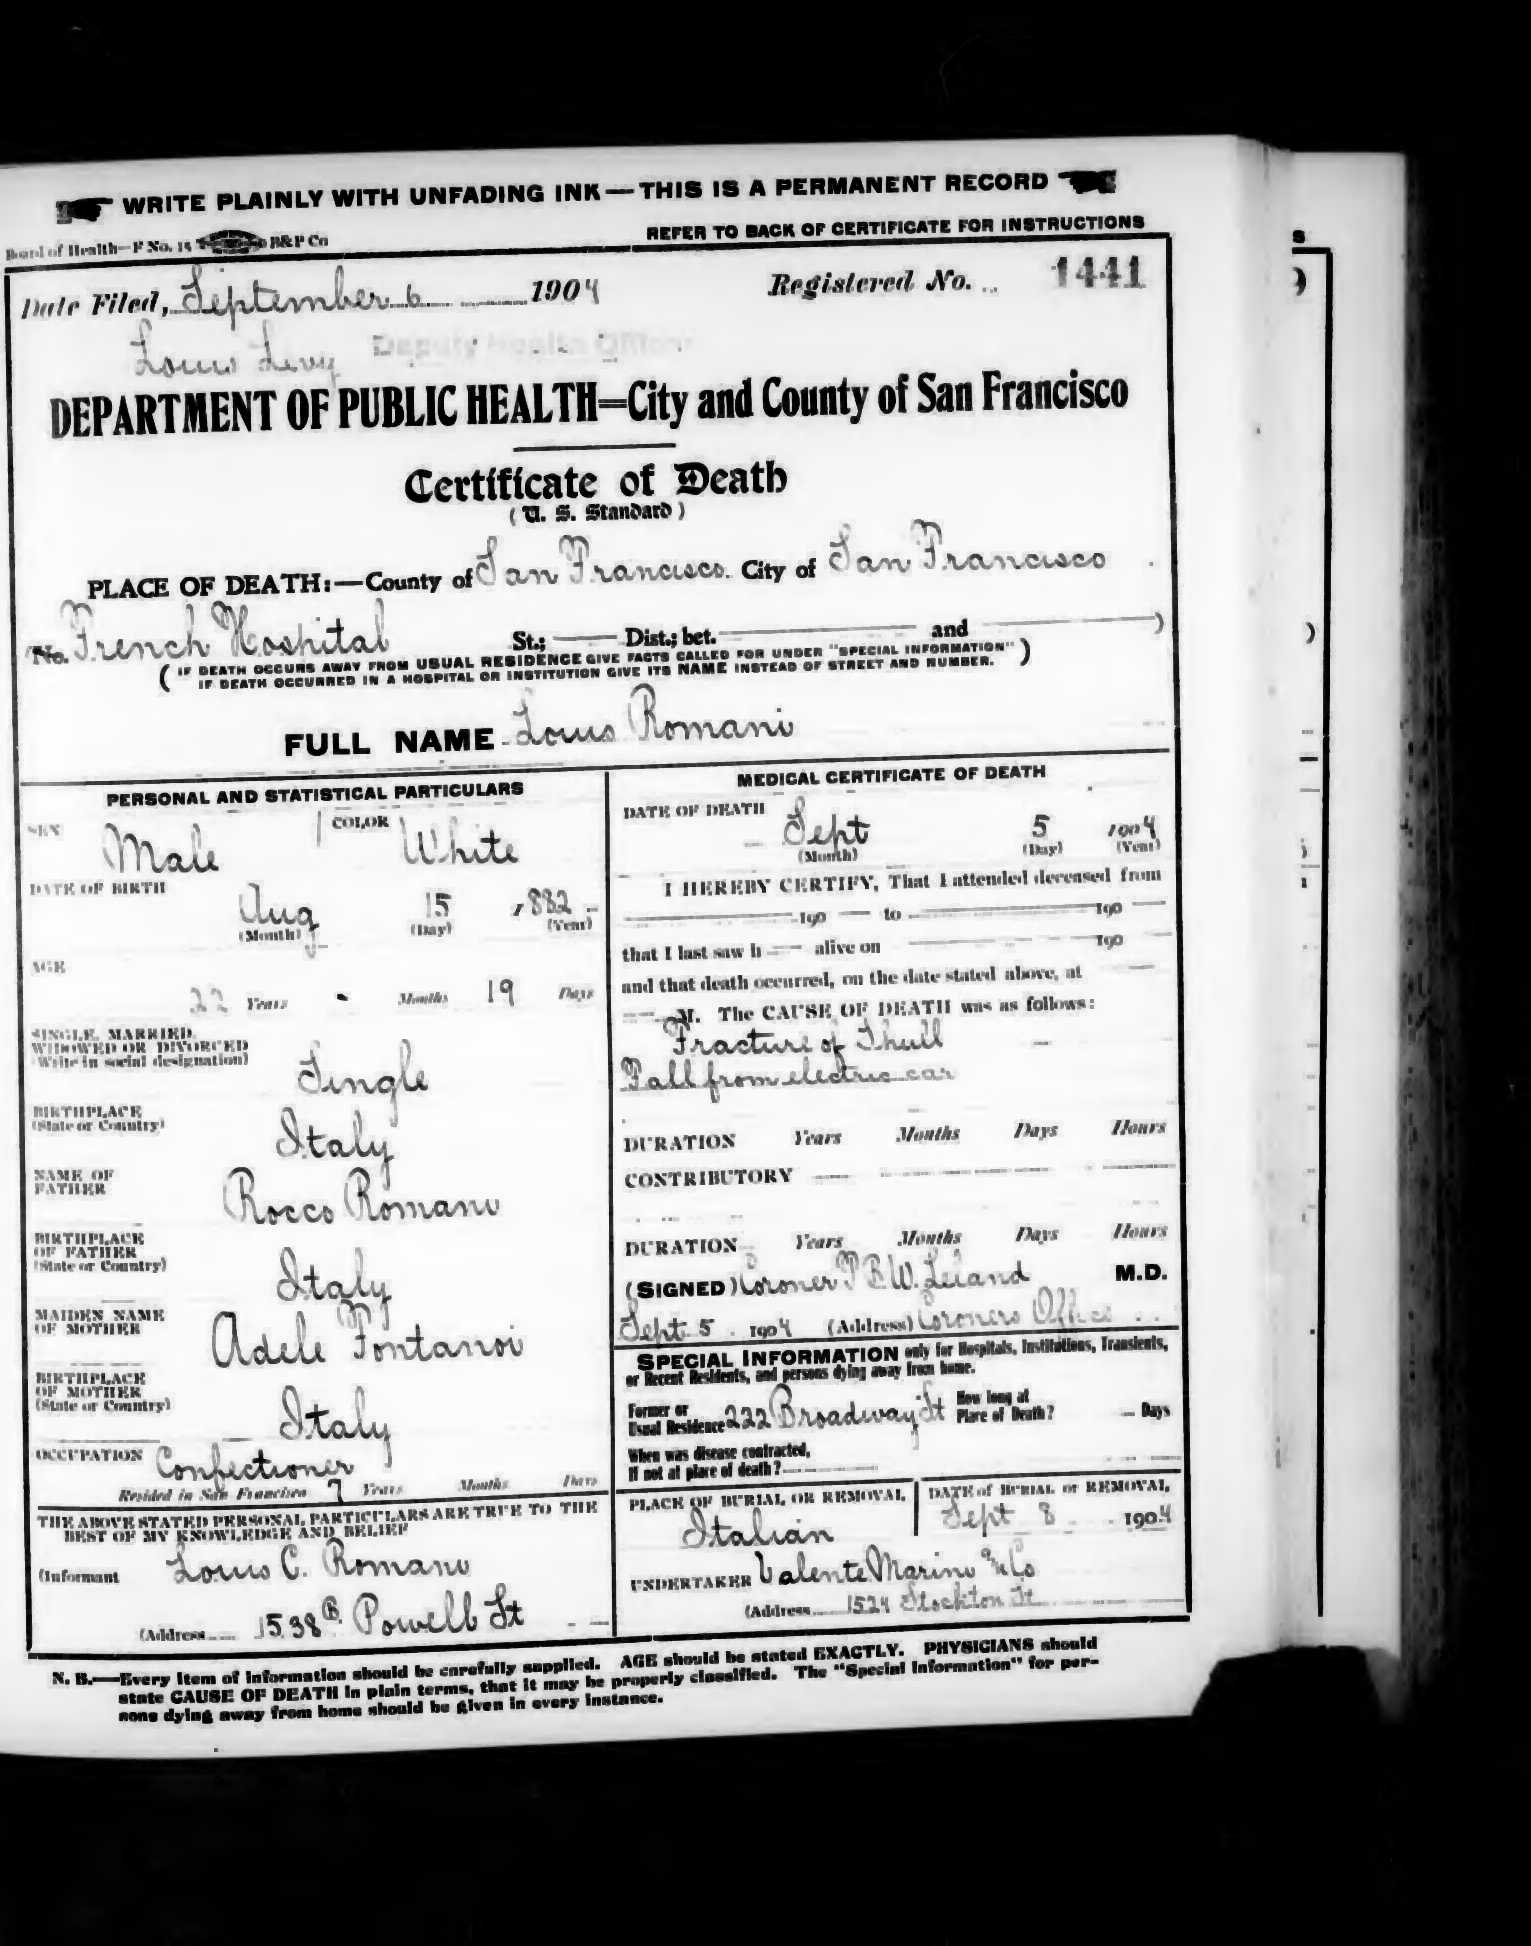 WRITE PLAINLY WITH UNFADING INK—THIS IS A PERMANENT RECORD
Board of Health—F No. 15 B&P Co
REFER TO BACK OF CERTIFICATE FOR INSTRUCTIONS
Date Filed, September 6 1904 Registered No. 1441
Louis Levy Deputy Health Officer
DEPARTMENT OF PUBLIC HEALTH=City and County of San Francisco
Certificate of Death
(U. S. Standard)
PLACE OF DEATH:—County of San Francisco. City of San Francisco
No. French Hospital St.; Dist.; bet. and )
( IF DEATH OCCURS AWAY FROM USUAL RESIDENCE GIVE FACTS CALLED FOR UNDER "SPECIAL INFORMATION" )
IF DEATH OCCURRED IN A HOSPITAL OR INSTITUTION GIVE ITS NAME INSTEAD OF STREET AND NUMBER.
FULL NAME Louis Romani
PERSONAL AND STATISTICAL PARTICULARS
SEX Male COLOR White
DATE OF BIRTH
Aug 15 1882
(Month) (Day) (Year)
AGE
22 Years - Months 19 Days
SINGLE, MARRIED,
WIDOWED OR DIVORCED
(Write in social designation)
Single
BIRTHPLACE
(State or Country)
Italy
NAME OF
FATHER
Rocco Romani
BIRTHPLACE
OF FATHER
(State or Country)
Italy
MAIDEN NAME
OF MOTHER
Adele Fontanoi
BIRTHPLACE
OF MOTHER
(State or Country)
Italy
OCCUPATION Confectioner
Resided in San Francisco 7 Years Months Days
THE ABOVE STATED PERSONAL PARTICULARS ARE TRUE TO THE
BEST OF MY KNOWLEDGE AND BELIEF
(Informant Louis C. Romani
(Address 1538 B. Powell St
MEDICAL CERTIFICATE OF DEATH
DATE OF DEATH
Sept 5 1904
(Month) (Day) (Year)
I HEREBY CERTIFY, That I attended deceased from
190 to 190
that I last saw h alive on 190
and that death occurred, on the date stated above, at
M. The CAUSE OF DEATH was as follows:
Fracture of Skull
Fall from electric car
DURATION Years Months Days Hours
CONTRIBUTORY
DURATION Years Months Days Hours
(SIGNED) Coroner T B W. Leland M.D.
Sept 5 1904 (Address) Coroners Office
SPECIAL INFORMATION only for Hospitals, Institutions, Transients,
or Recent Residents, and persons dying away from home.
Former or
Usual Residence 222 Broadway St
How long at
Place of Death? Days
When was disease contracted,
If not at place of death?
PLACE OF BURIAL OR REMOVAL
Italian
DATE of BURIAL or REMOVAL
Sept 8 1904
UNDERTAKER Valente Marini & Co
(Address 1524 Stockton St
N. B.—Every item of information should be carefully supplied. AGE should be stated EXACTLY. PHYSICIANS should
state CAUSE OF DEATH in plain terms, that it may be properly classified. The "Special Information" for per-
sons dying away from home should be given in every instance.